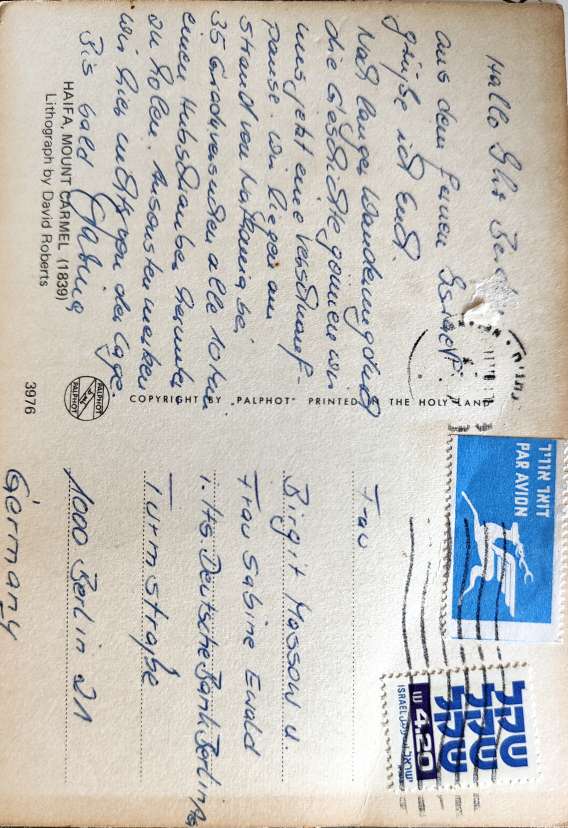 Hallo Ihr
aus dem fernen Israel
grüße ich Euch.
Nach langer Wanderung durch
die Geschichte gönnen wir
uns jetzt eine Verschnauf-
pause. Wir liegen am
Strand von Nathania bei
35 Grad versuchen alle 10 min
einen Hubschrauber herunter
zu holen. Ansonsten merken
wir hier nichts von der Lage.
Bis bald
HAIFA, MOUNT CARMEL (1839)
Lithograph by David Roberts
3976
PALPHOT
PALPHOT
COPYRIGHT BY „PALPHOT" PRINTED IN THE HOLY LAND
דואר אוויר
PAR AVION
שקל
שקל
שקל
שקל
ש 4.20
ISRAEL اسرائيل ישראל
Frau
Birgit Massow u.
Frau Sabine Ewald
i. Hs Deutsche Bank Berlin AG
Turmstraße
1000 Berlin 21
Germany